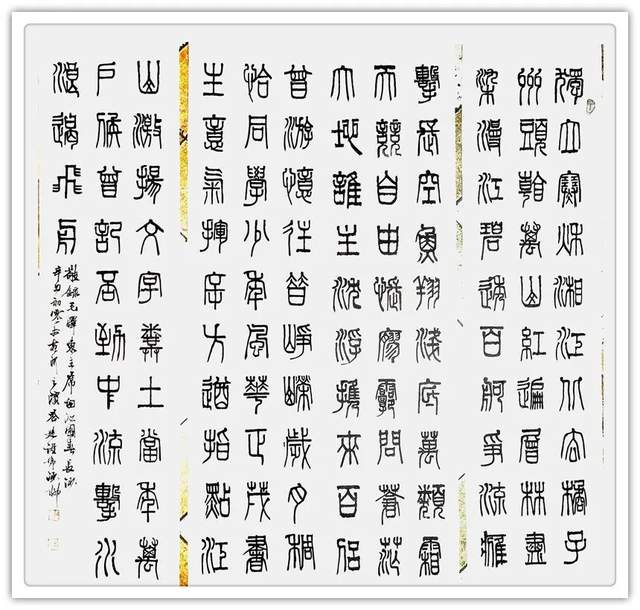 獨立寒秌湘江北去橘子
州頭看萬山紅遍層林盡
染漫江碧透百舸爭流鷹
擊長空魚翔淺底萬類霜
天競自由悵寥廓問蒼茫
大地誰主沈浮攜來百侶
曾游憶往昔崢嶸歲月稠
恰同學少年風華正茂書
生意氣揮斥方遒指點江
山激揚文字糞土當年萬
戶侯曾記否到中流擊水
浪遏飛舟
敬録毛澤東主席沁園春長沙